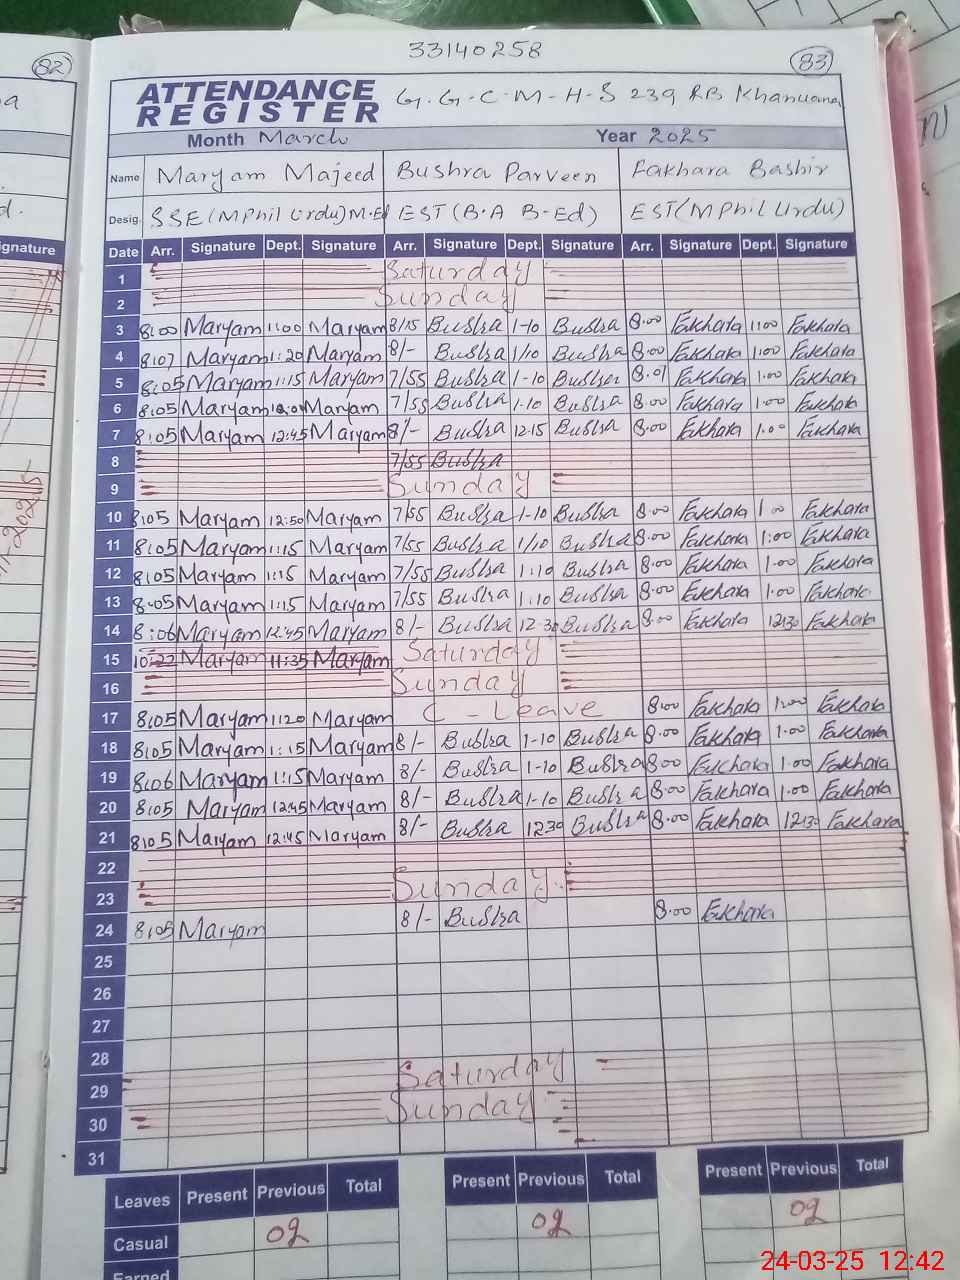 82
33140258
83
ATTENDANCE REGISTER G.G.C.M-H-S 239 RB Khanuana
Month March Year 2025
Name Maryam Majeed Bushra Parveen Fakhara Bashir
Desig. SSE (MPhil Urdu) M.Ed EST (B.A B-Ed) EST (MPhil Urdu)
Signature Date Arr. Signature Dept. Signature Arr. Signature Dept. Signature Arr. Signature Dept. Signature
1 Saturday
2 Sunday
3 8:00 Maryam 1:00 Maryam 8/15 Bushra 1-10 Bushra 8.00 Fakhara 1:00 Fakhara
4 8:07 Maryam 1:20 Maryam 8/- Bushra 1/10 Bushra 8.00 Fakhara 1:00 Fakhara
5 8:05 Maryam 1:15 Maryam 7/55 Bushra 1-10 Bushra 8.01 Fakhara 1.00 Fakhara
6 8:05 Maryam Maryam 7/55 Bushra 1-10 Bushra 8.00 Fakhara 1.00 Fakhara
7 8:05 Maryam 12:45 Maryam 8/- Bushra 12.15 Bushra 8.00 Fakhara 1.00 Fakhara
8 7/55 Bushra
9 Sunday
10 8:05 Maryam 12:50 Maryam 7/55 Bushra 1-10 Bushra 8.00 Fakhara 1 00 Fakhara
11 8:05 Maryam 1:15 Maryam 7/55 Bushra 1/10 Bushra 8.00 Fakhara 1:00 Fakhara
12 8:05 Maryam 1:15 Maryam 7/55 Bushra 1:10 Bushra 8.00 Fakhara 1.00 Fakhara
13 8:05 Maryam 1:15 Maryam 7/55 Bushra 1.10 Bushra 8.00 Fakhara 1.00 Fakhara
14 8:06 Maryam 12:45 Maryam 8/- Bushra 12.30 Bushra 8.00 Fakhara 12:30 Fakhara
15 10:22 Maryam 11:35 Maryam Saturday
16 Sunday
17 8:05 Maryam 1:20 Maryam C - Leave 8:00 Fakhara 1:00 Fakhara
18 8:05 Maryam 1:15 Maryam 8/- Bushra 1-10 Bushra 8.00 Fakhara 1.00 Fakhara
19 8:06 Maryam 1:15 Maryam 8/- Bushra 1-10 Bushra 8.00 Fakhara 1.00 Fakhara
20 8:05 Maryam 12:45 Maryam 8/- Bushra 1-10 Bushra 8.00 Fakhara 1.00 Fakhara
21 8:05 Maryam 12:45 Maryam 8/- Bushra 12.30 Bushra 8.00 Fakhara 12:30 Fakhara
22
23 Sunday
24 8:05 Maryam 8/- Bushra 8.00 Fakhara
25
26
27
28
29 Saturday
30 Sunday
31
Leaves Present Previous Total Present Previous Total Present Previous Total
Casual 02 02 02
Earned
24-03-25 12:42